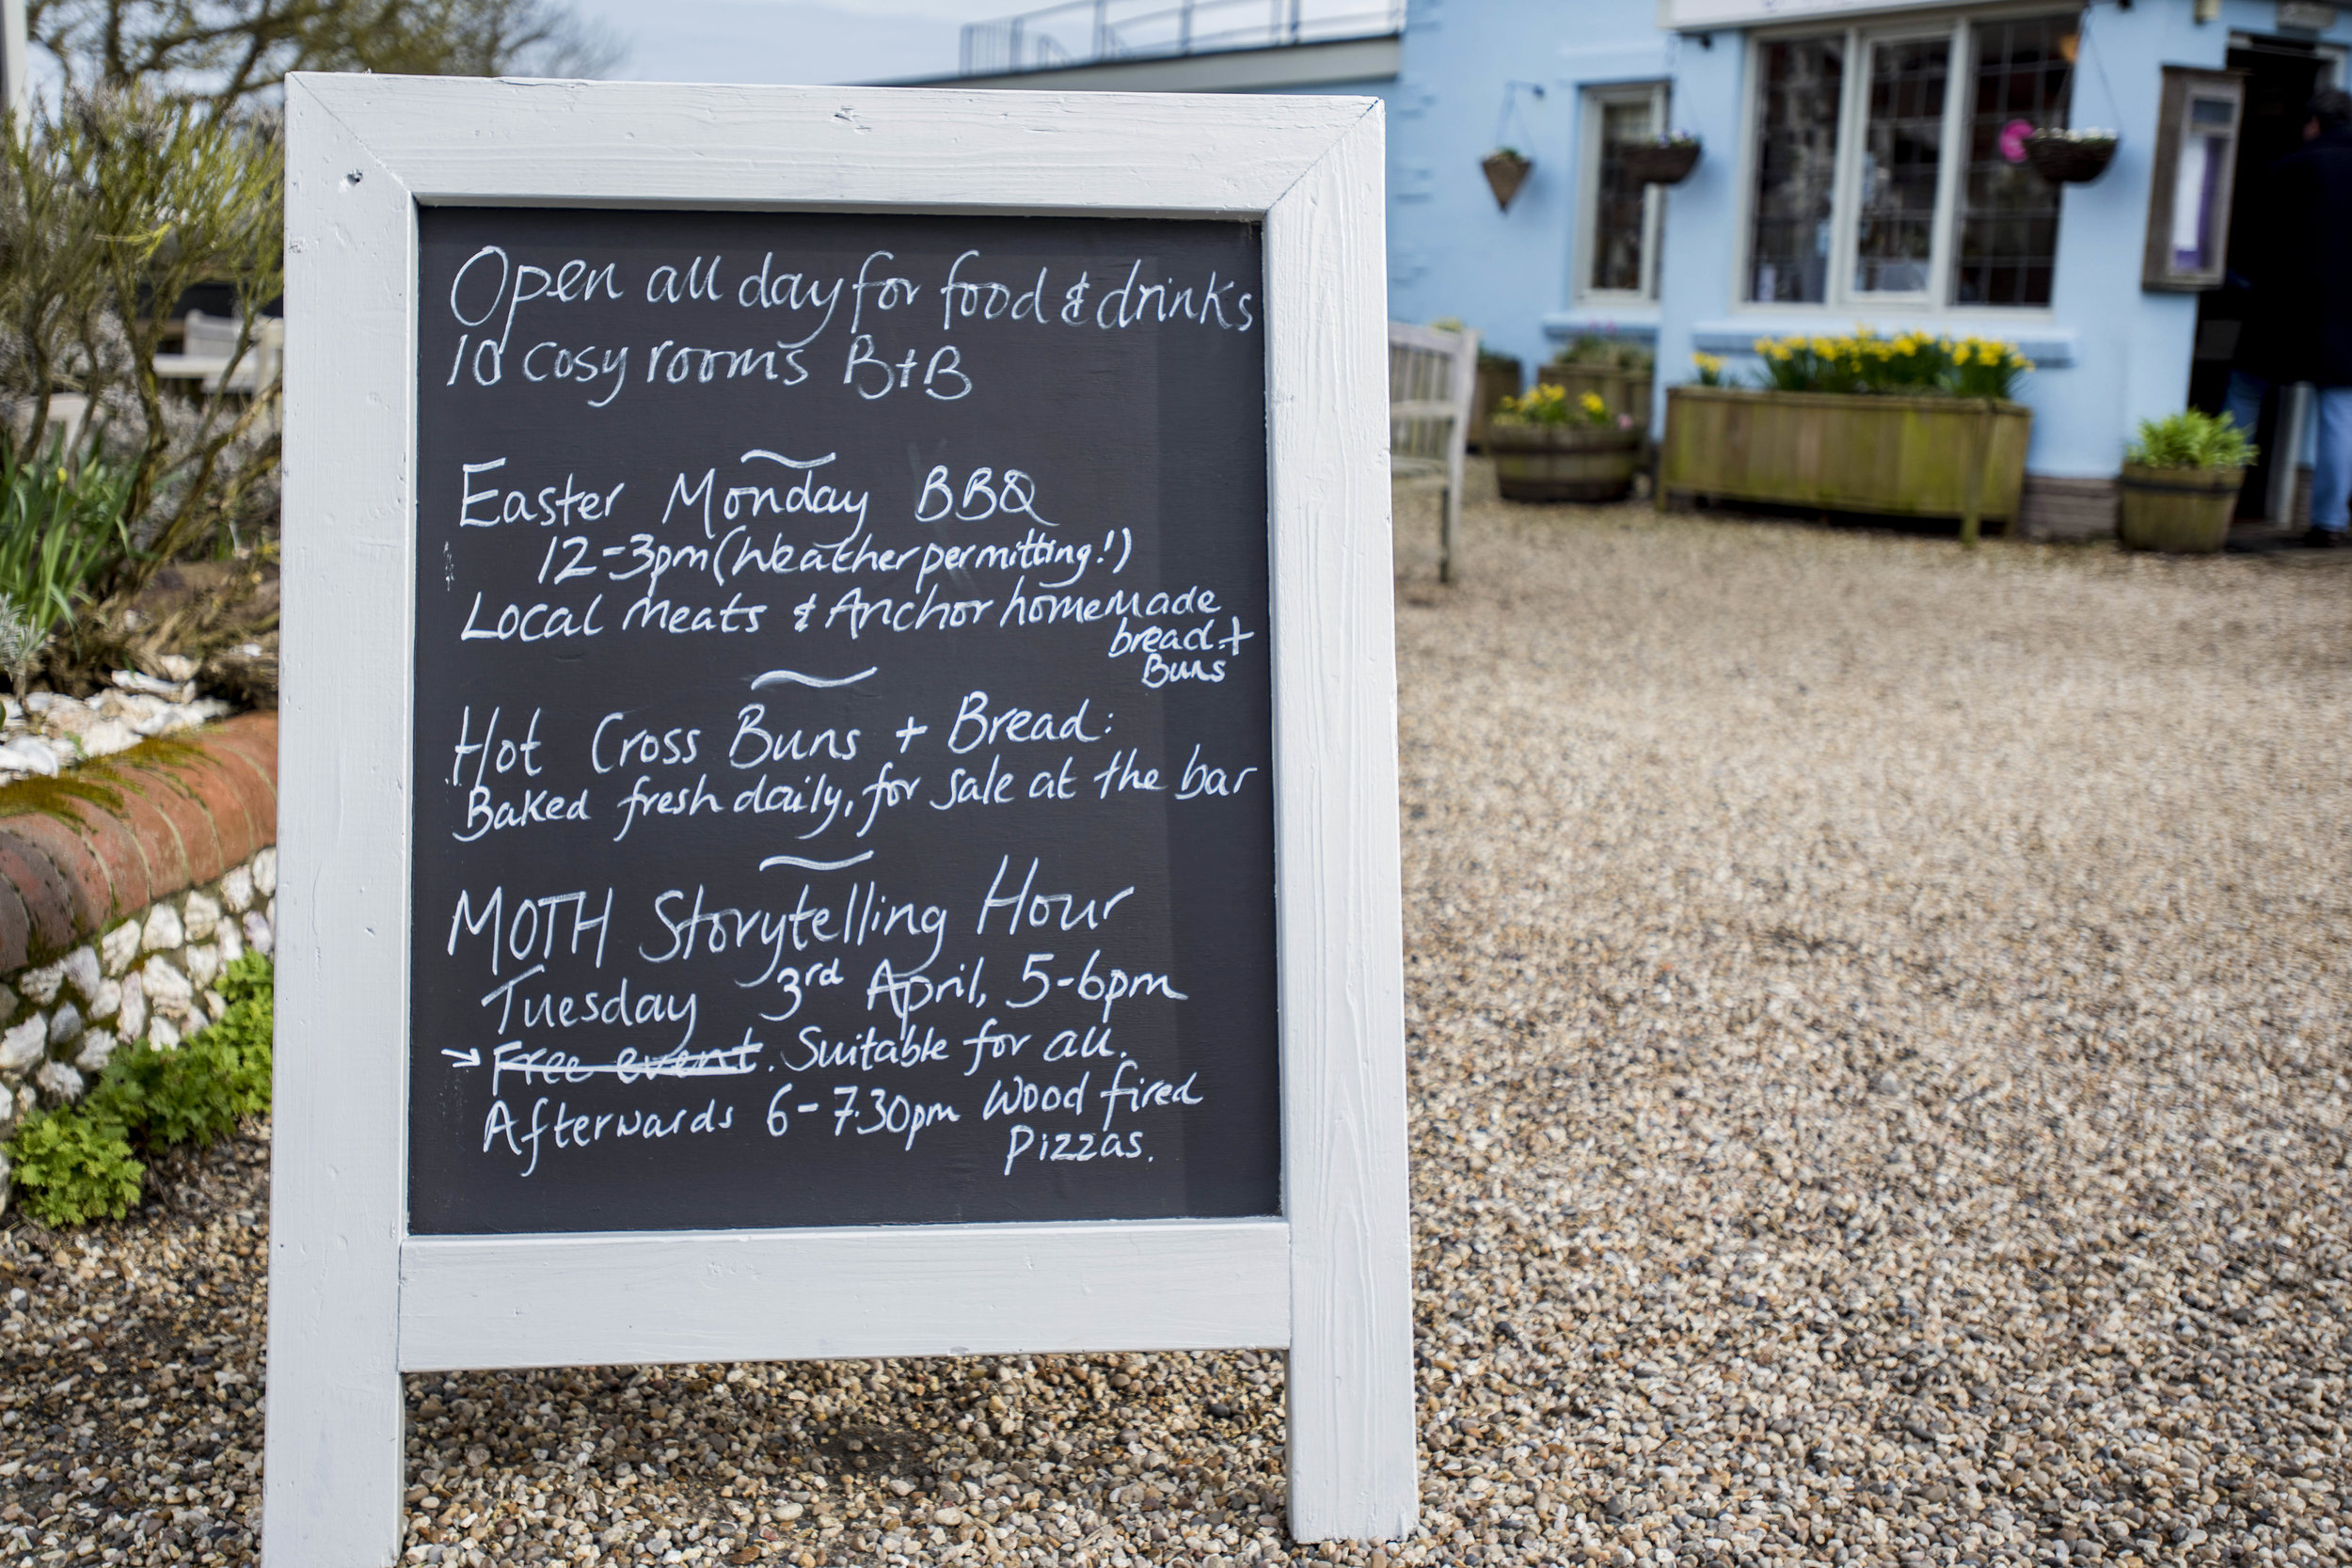 Open all day for food & drinks
10 cosy rooms B+B
Easter Monday BBQ
12-3pm (Weather permitting!)
Local meats & Anchor homemade
bread +
Buns
Hot Cross Buns + Bread:
Baked fresh daily, for sale at the bar
MOTH Storytelling Hour
Tuesday 3rd April, 5-6pm
→ Free event. Suitable for all.
Afterwards 6-7.30pm Wood fired
Pizzas.